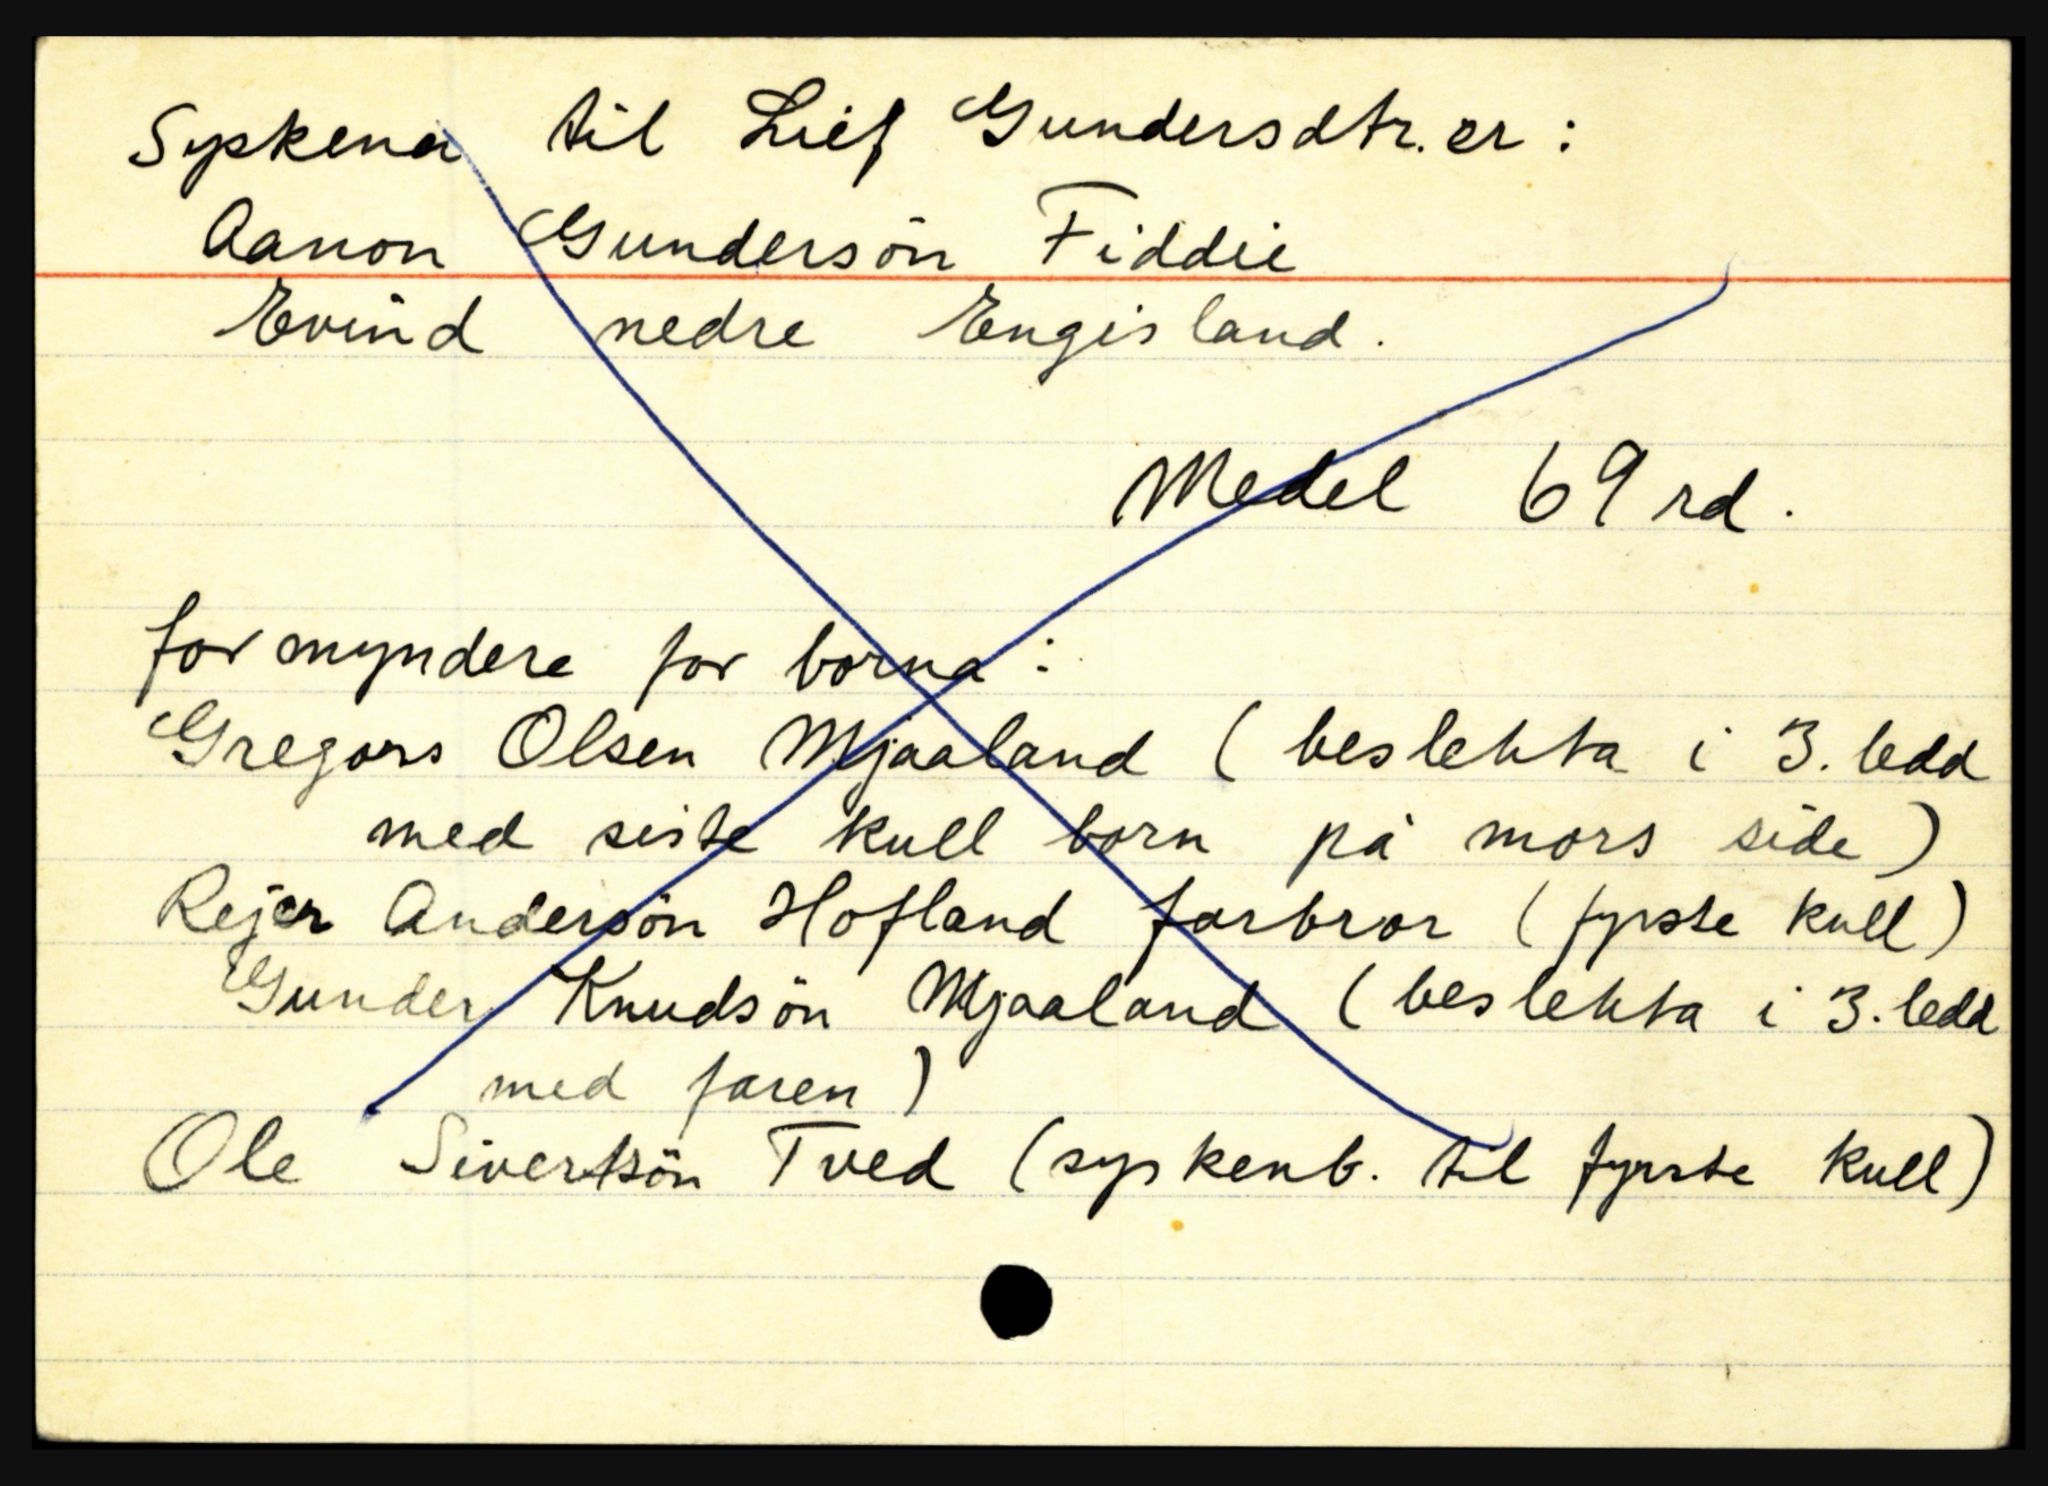 Syskena til Lief Gundersdtr. er:
Aanon Gundersön Fiddie
Evind nedre Engisland.
Medel 69 rd.
formyndere for borna:
Gregors Olsen Mjaaland (beslekta i 3. ledd
med siste kull born på mors side)
Rejer Andersön Hofland farbror (fyrste kull)
Gunder Knudsön Mjaaland (beslekta i 3. ledd
med faren)
Ole Sivertsön Tved (syskenb. til fyrste kull)